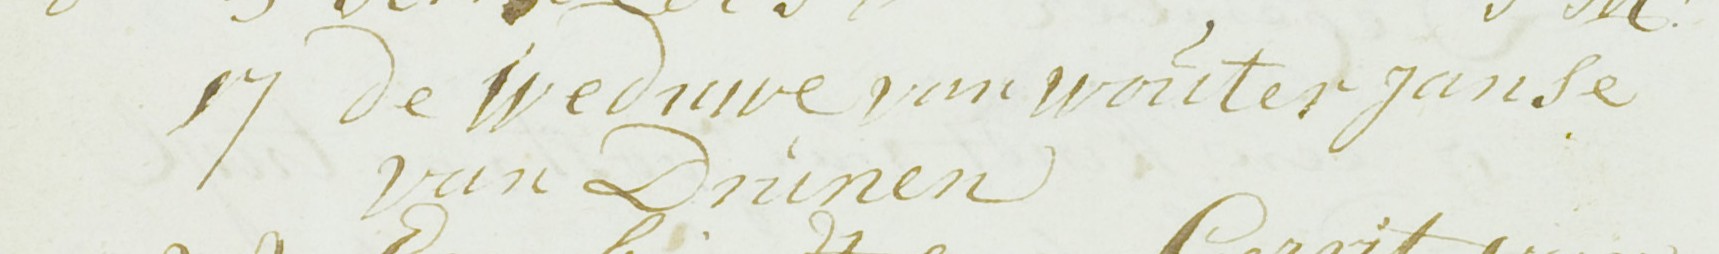 17 de Weduwe van Wouter Janse
van Drunen